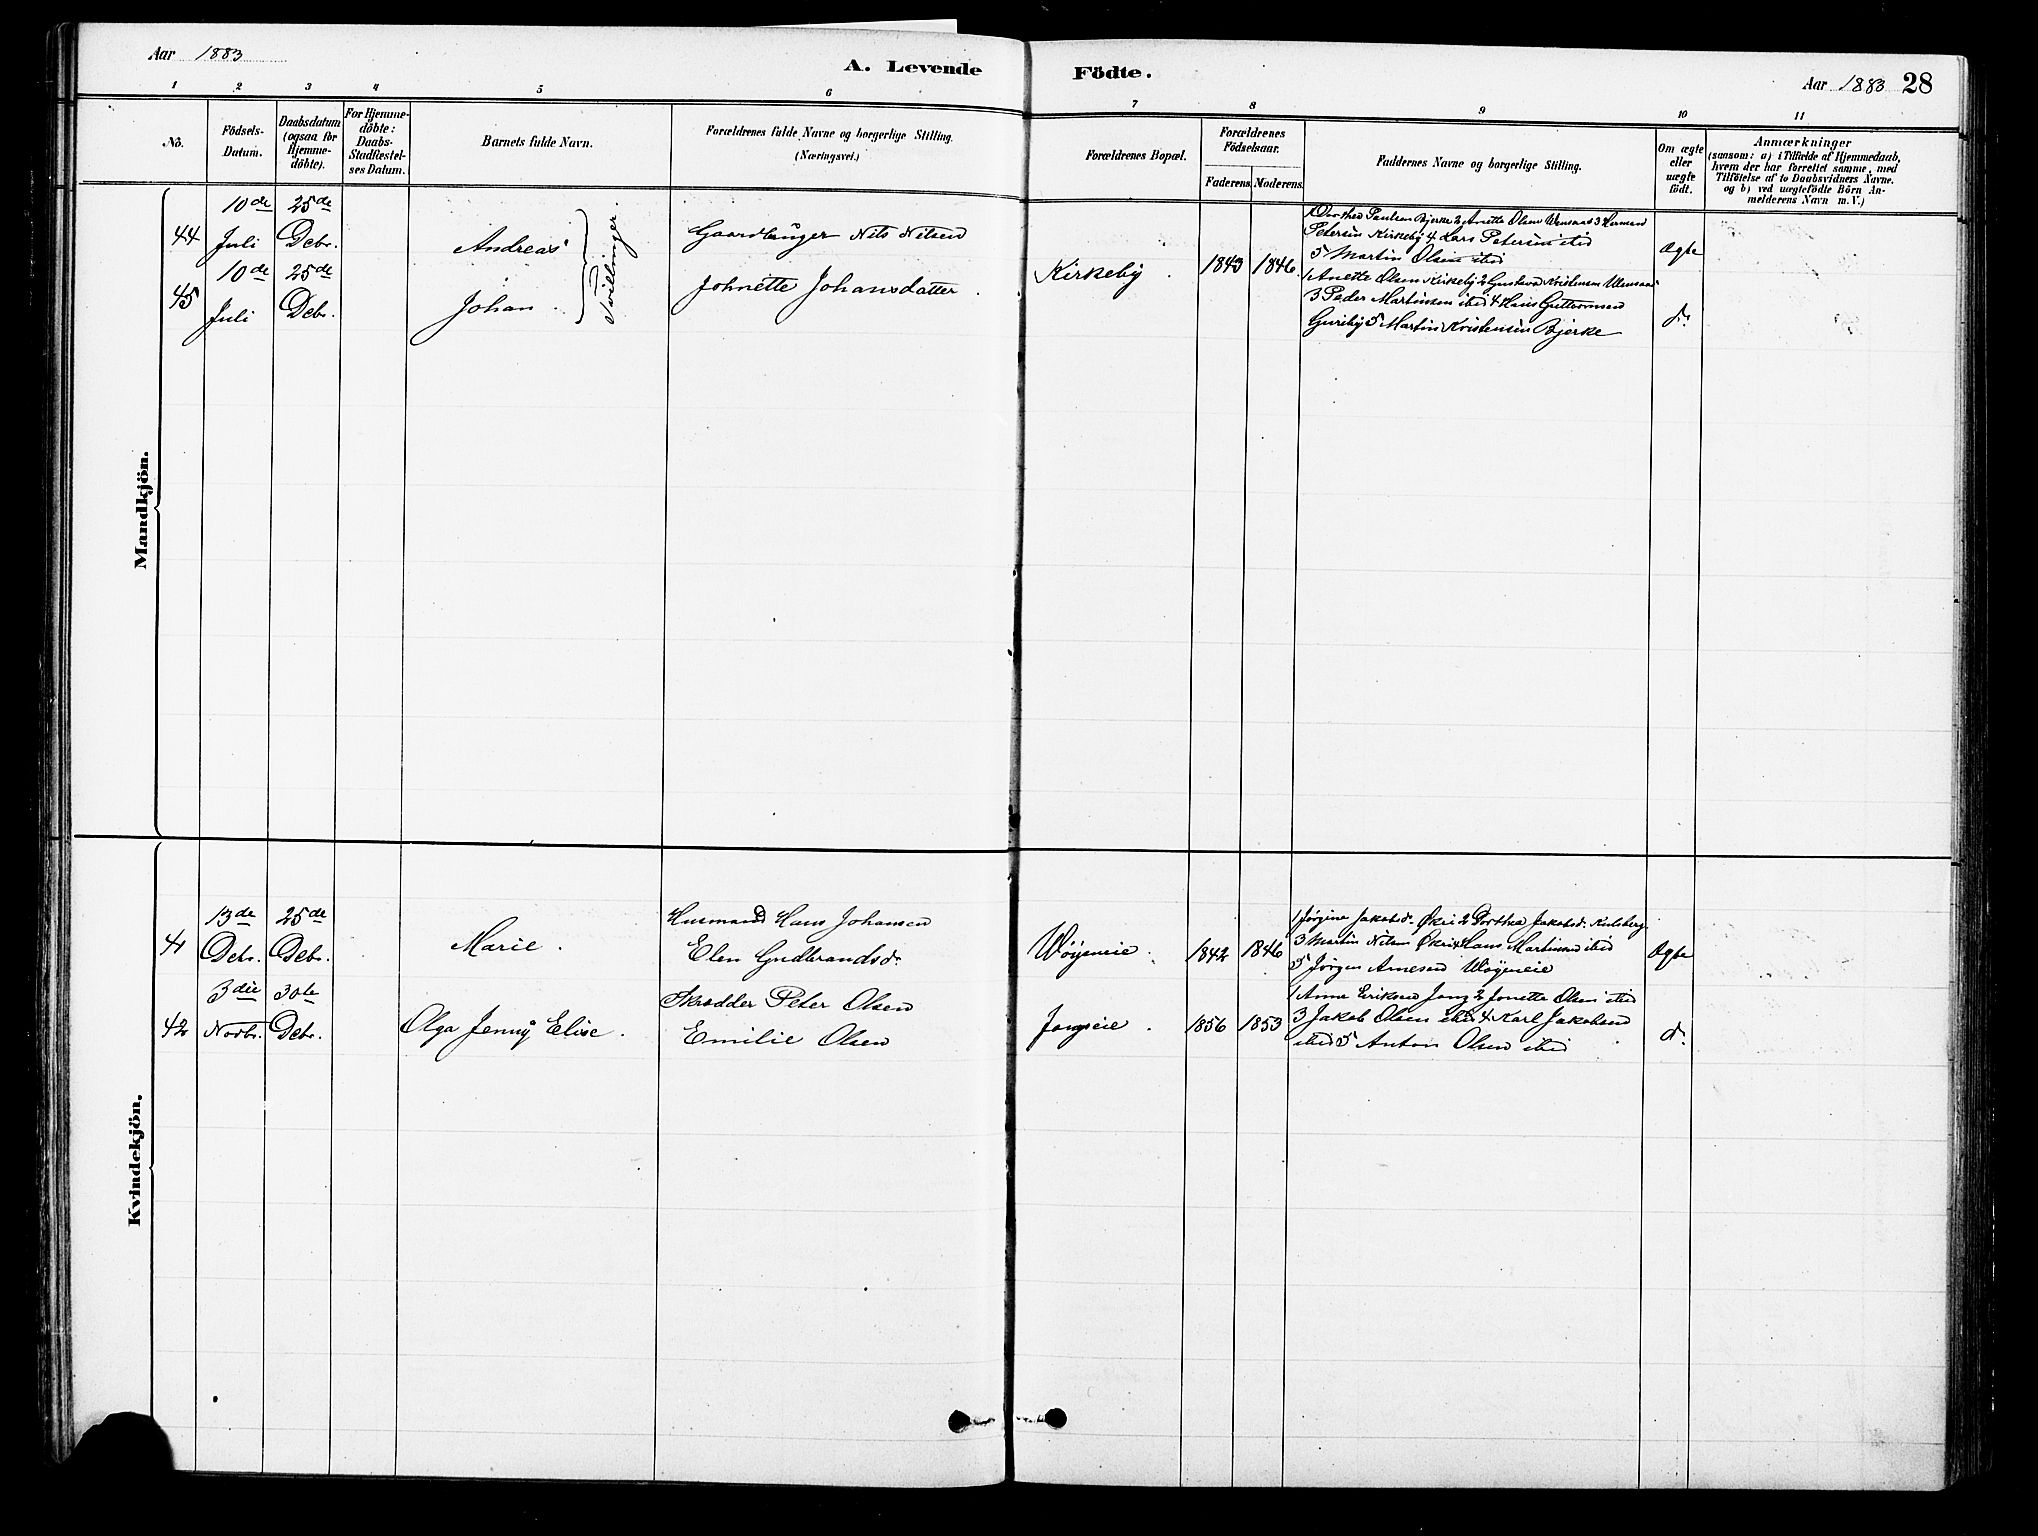 Aar 1883
A. Levende Födte.
Aar 1883 28
1 2 3 4 5 6 7 8 9 10 11
No.
Födsels-
Datum.
Daabsdatum
(ogsaa for
Hjemme-
döbte).
For Hjemme-
döbte:
Daabs-
Stadfæstel-
ses Datum.
Barnets fulde Navn.
Forældrenes fulde Navne og borgerlige Stilling.
(Næringsvei.)
Forældrenes Bopæl.
Forældrenes
Födselsaar.
Faderens. Moderens.
Faddernes Navne og borgerlige Stilling.
Om ægte
eller
uægte
født.
Anmærkninger
(saasom: a) i Tilfælde af Hjemmedaab,
hvem der har forrettet samme, med
Tilföielse af to Daabsvidners Navne.
og b) ved uægtefödte Börn An-
melderens Navn m. V.)
Mandkjön.
44
10de
Juli
25de
Debr.
Andreas
Tvillinger.
Gaardbruger Nils Nilsen
Johnette Johansdatter.
Kirkeby.
1843 1846.
1 Dorthea Paulsen Bjerke 2 Anette Olsen 3 Herman
Petersen Kirkeby 4 Lars Petersen ibid
5 Martin Olsen ibid
Ægte
45
10de
Juli
25de
Debr.
Johan.
1 Anette Olsen Kirkeby 2 Gustava Kristensen
3 Peder Martinsen ibid 4 Hans Guttormsen
Guriby 5 Martin Kristensen Bjerke
do
Kvindekjön.
41
13de
Debr.
25de
Debr.
Marie.
Husmand Hans Johansen
Elen Gudbrandsdr
Wøyeneie.
1842 1846
1 Jørgine Jakobsdr Økri 2 Dorthea Jakobsdr Kulsberg
3 Martin Nilsen Økri 4 Hans Martinsen ibid
5 Jørgen Arnesen Wøyeneie
Ægte
42
3die
Novbr.
30te
Debr.
Olga Jenny Elise.
Skrædder Peter Olsen
Emilie Olsen
Jongseie.
1856 1853
1 Anna Eriksen Jong 2 Jonette Olsen ibid
3 Jakob Olsen ibid 4 Karl Jakobsen
ibid 5 Anton Olsen ibid
do